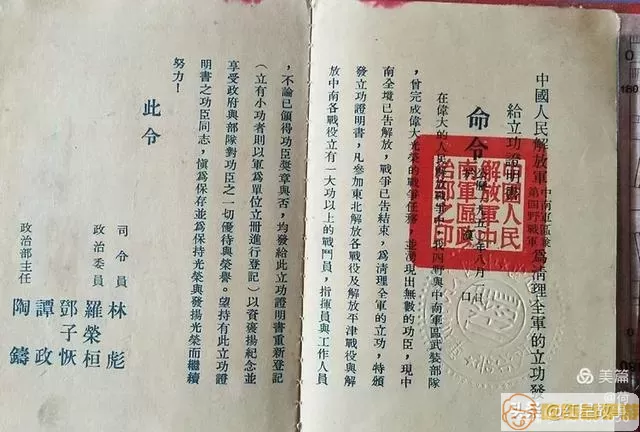 中國人民解放軍 中南軍區兼 第四野戰軍 為清理全軍的立功發
給立功證明書
命令
年八月一日
中國人民
解放軍中
南軍區政
治部之印
在偉大的人民解放戰爭中，我四野與中南軍區武裝部隊
，曾完成偉大光榮的戰爭任務，並湧現出無數的功臣，現中
南全境已告解放，戰爭已告結束，為清理全軍的立功，特頒
發立功證明書，凡參加東北解放各戰役及解放平津戰役與解
放中南各戰役立有一大功以上的戰鬥員，指揮員與工作人員
，不論已頒得功臣獎章與否，均發給此立功證明書重新登記
（立有小功者則以軍為單位立冊進行登記）以資褒揚紀念並
享受政府與部隊對功臣之一切優待與榮譽。望持有此立功證
明書之功臣同志，愼為保存並為保持光榮與發揚光榮而繼續
努力！
此令
司令員 林彪
政治委員 羅榮桓
鄧子恢
政治部主任 譚政
陶鑄
美篇
头条